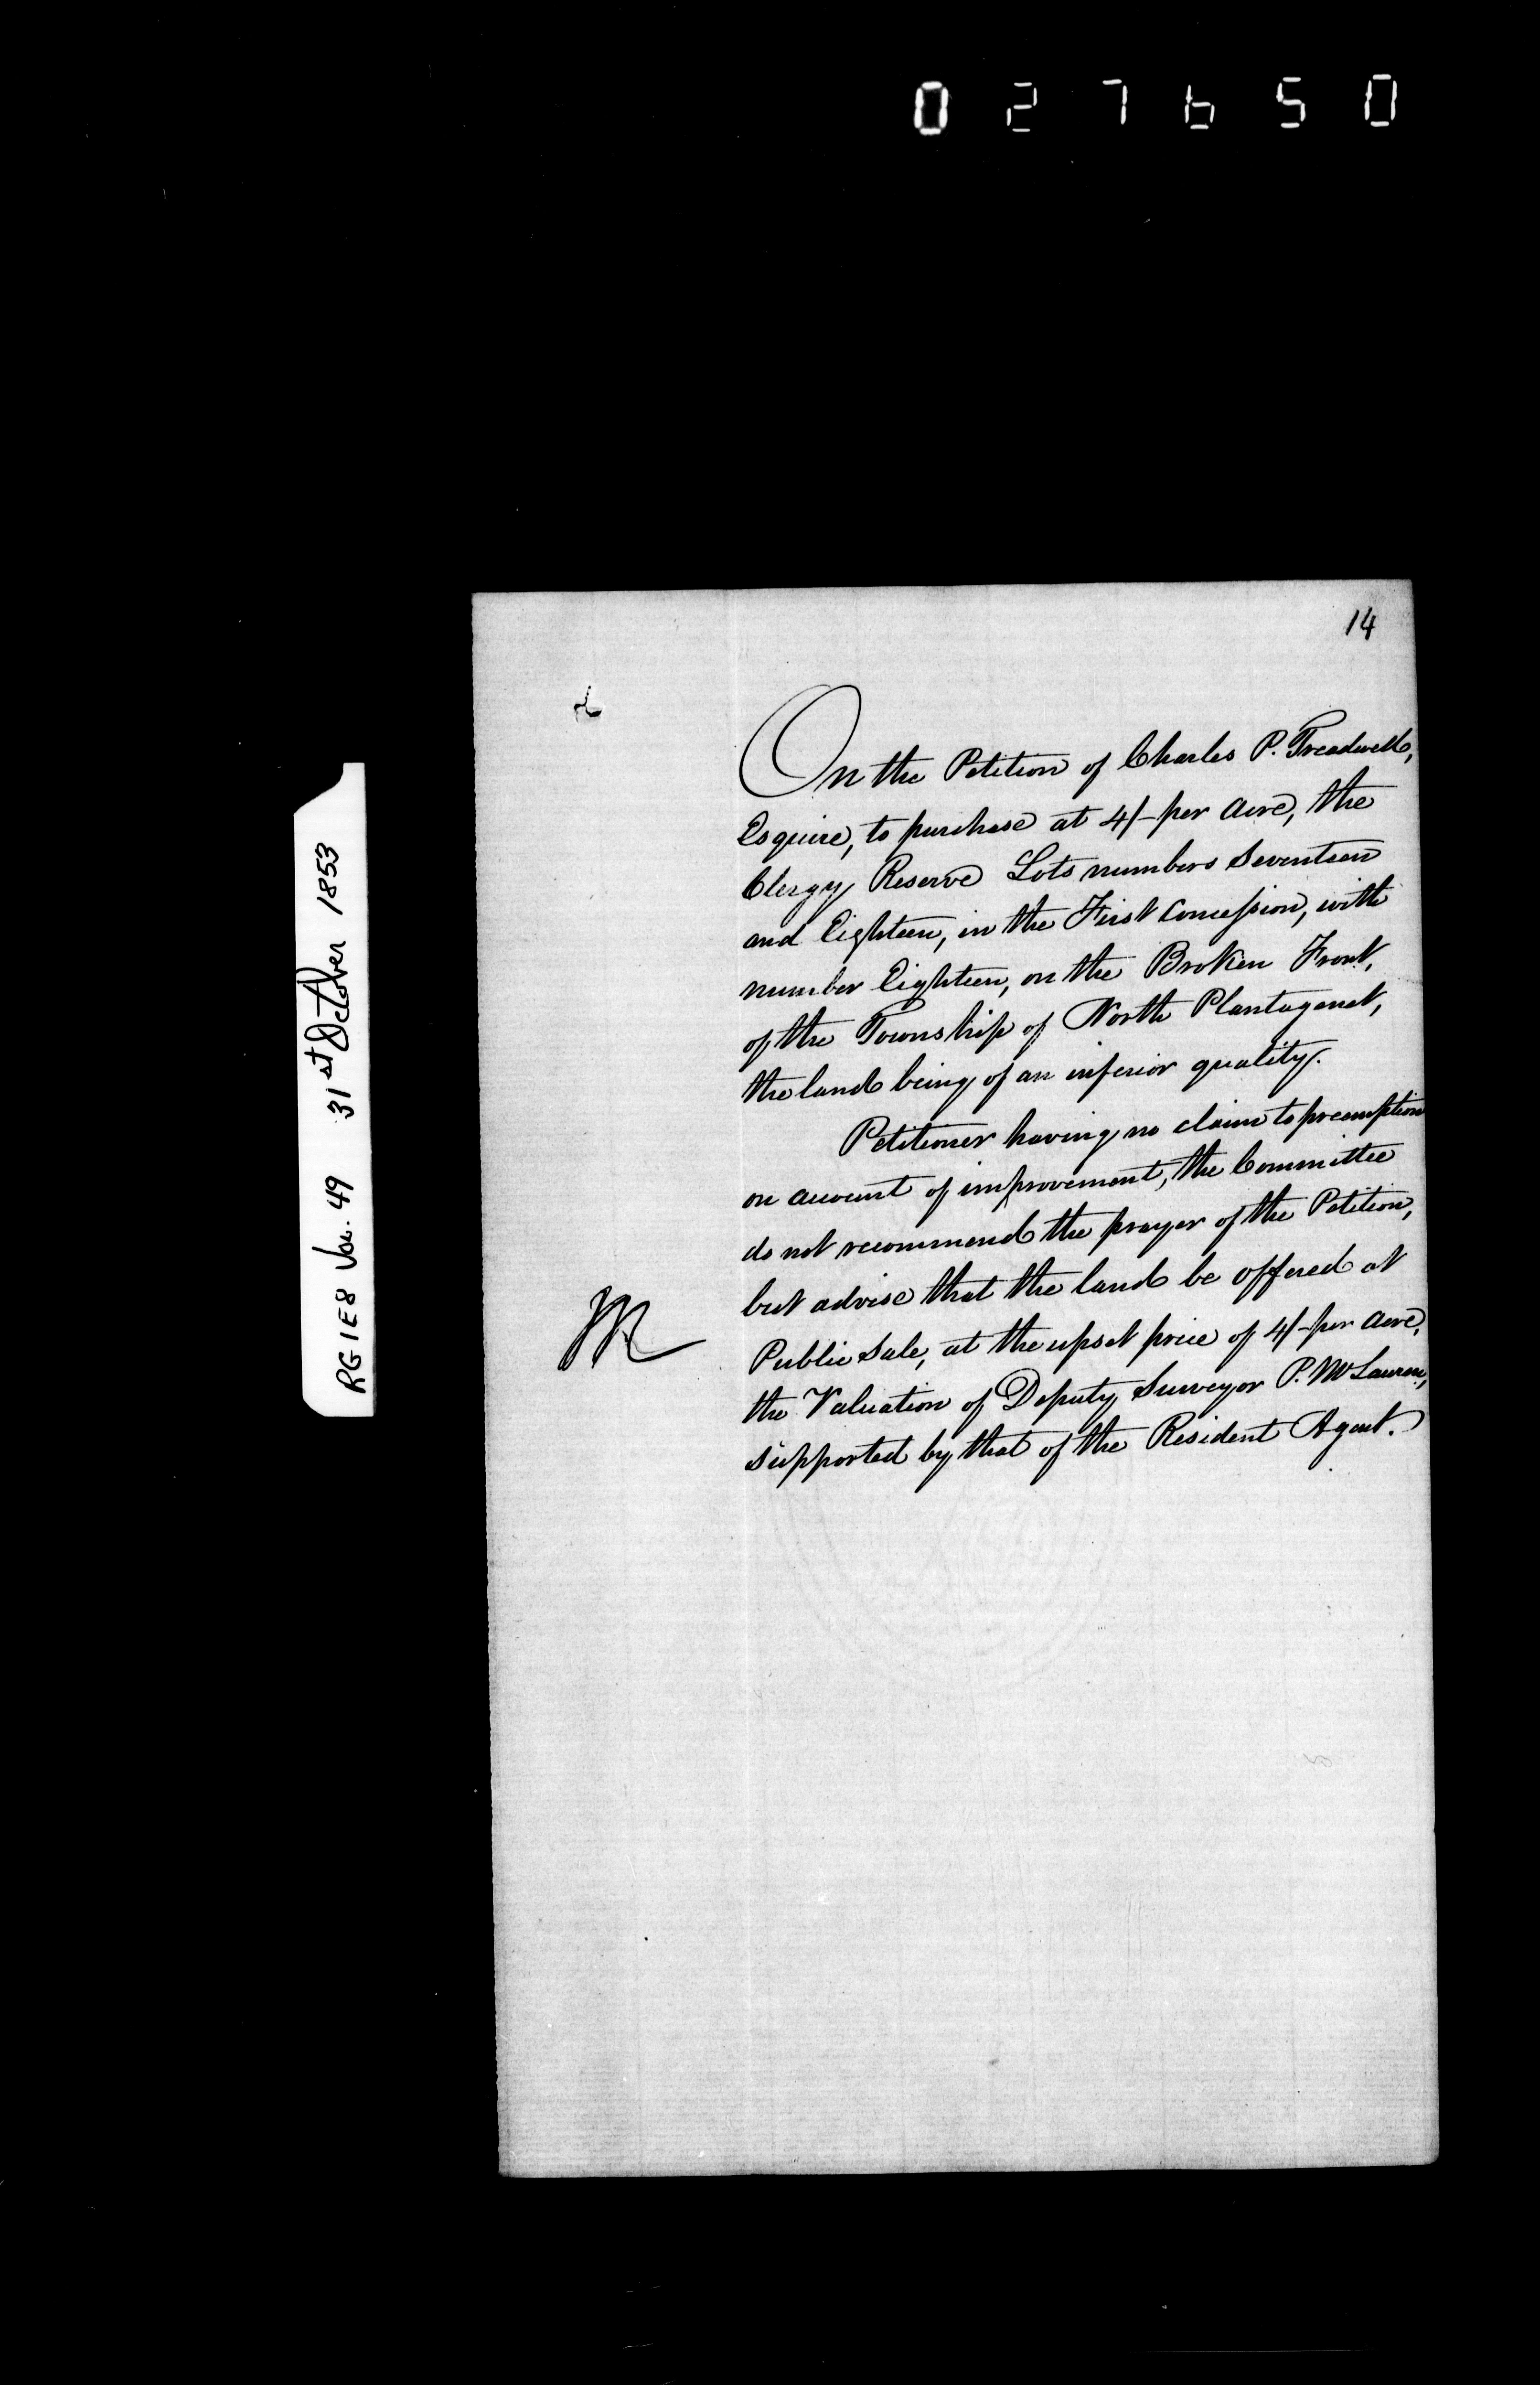 027650
14
On the Petition of Charles P. Treadwell,
Esquire, to purchase at 4/- per Acre, the
Clergy Reserve Lots numbers Seventeen
and Eighteen, in the First Concession, with
number Eighteen, on the Broken Front,
of the Township of North Plantagenet,
the land being of an inferior quality.
Petitioner having no claim to preemption
on account of improvement, the Committee
do not recommend the prayer of the Petition,
but advise that the land be offered at
Public Sale, at the upset price of 4/- per Acre,
the Valuation of Deputy Surveyor P. McLaren,
supported by that of the Resident Agent.
RG 1 E8 Vol. 49 31st October 1853